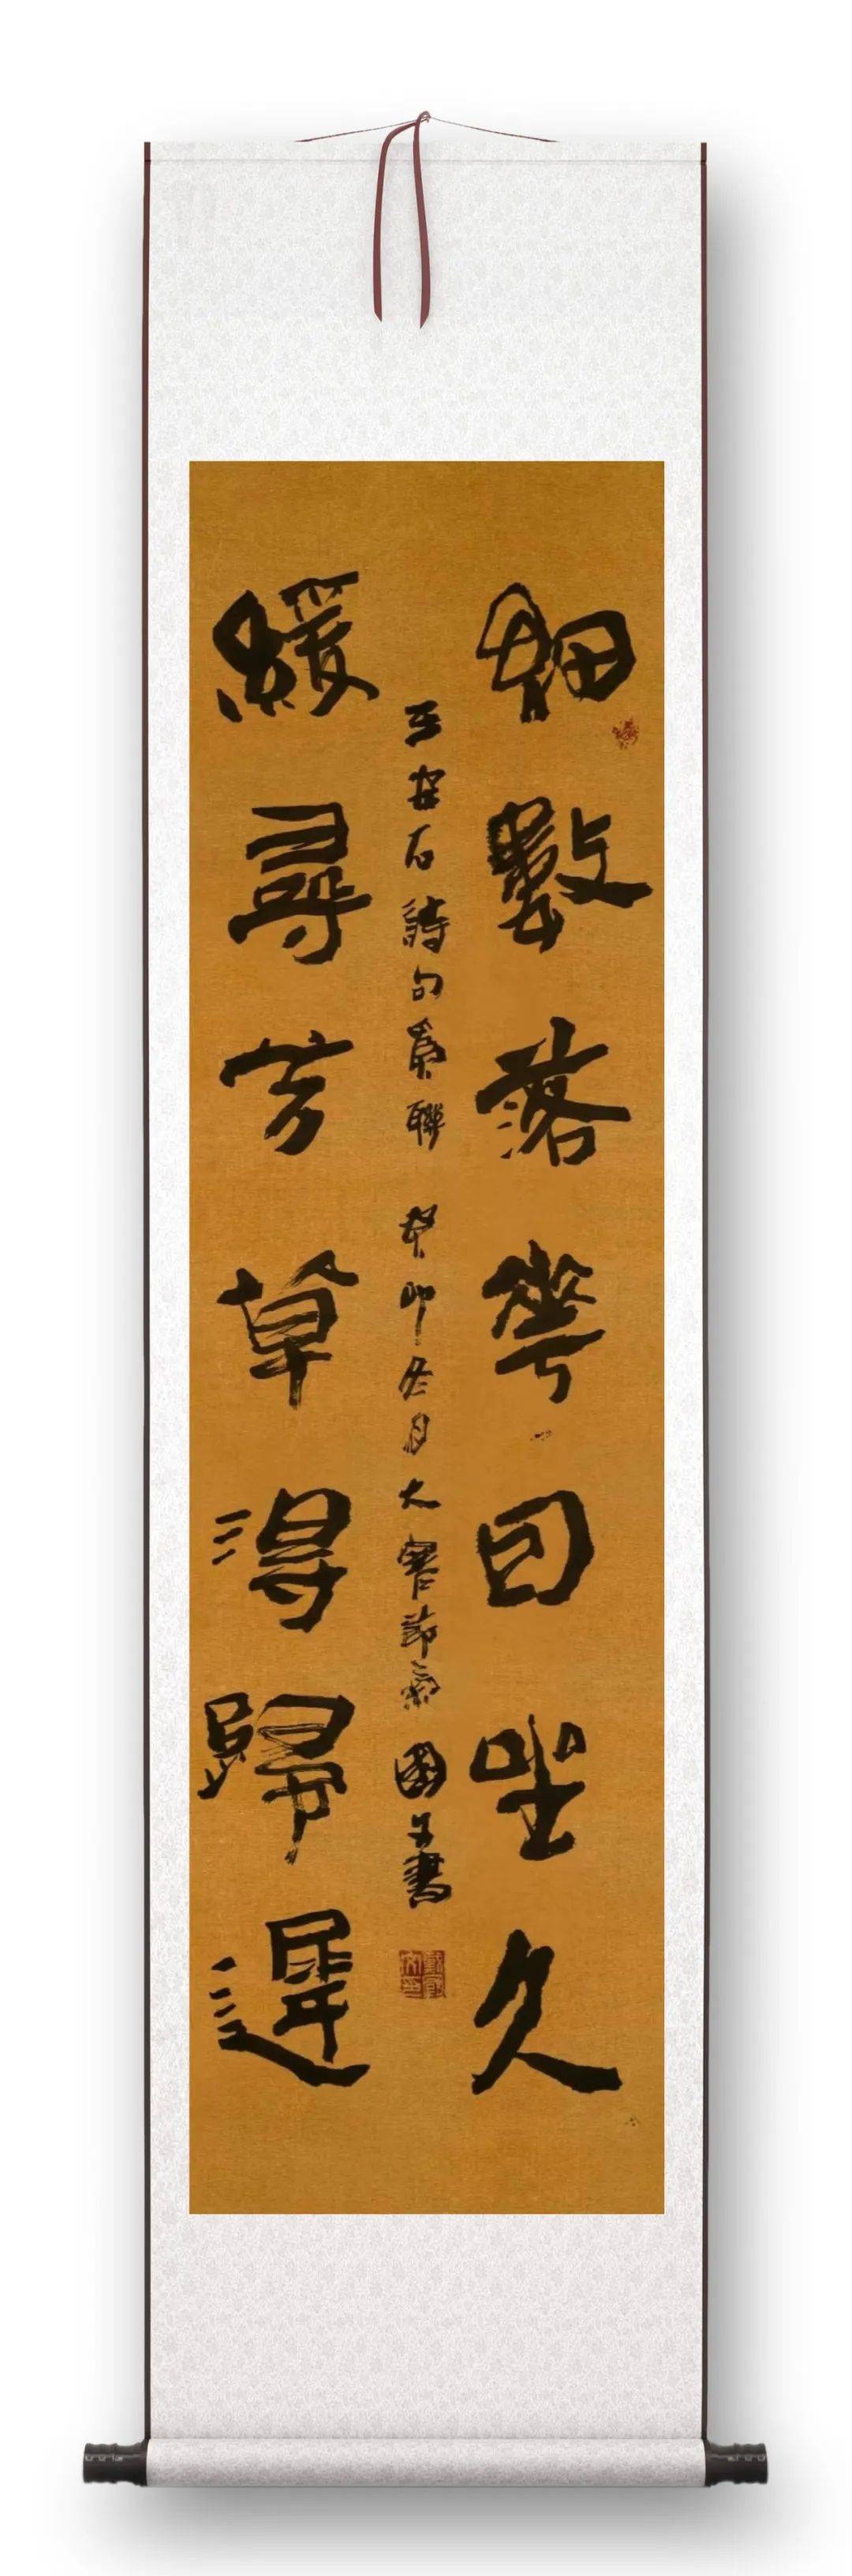 細數落華因坐久
緩尋芳草得歸遲
王安石詩句爲聯 癸卯冬月大寒節氣 國文書